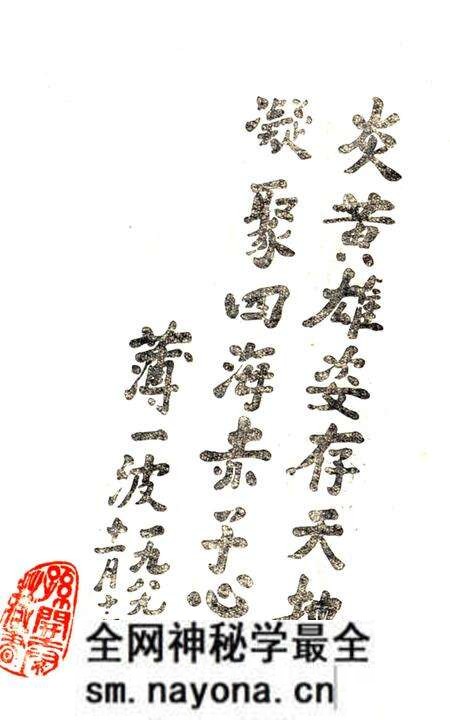 炎黄雄姿存天地
凝聚四海赤子心
薄一波
全网神秘学最全
sm.nayona.cn